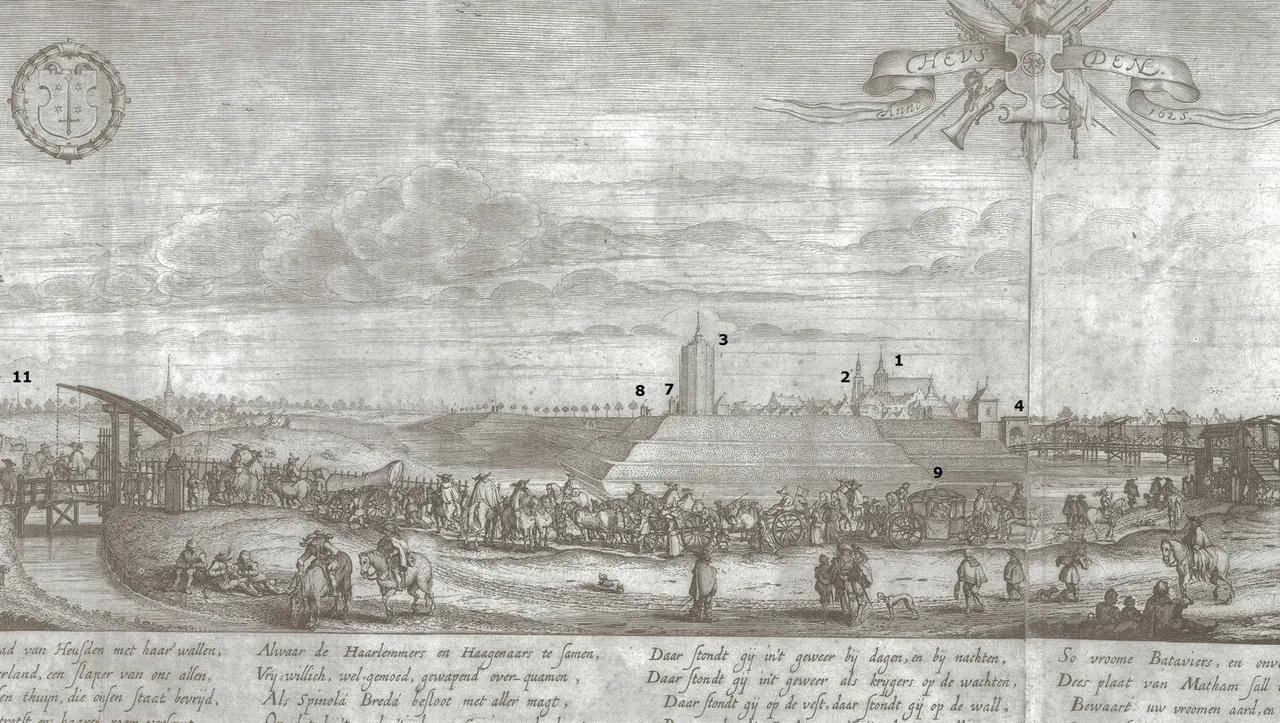 HEUSDEN.
Anno 1625.
3
1
11
8
7
2
4
9
ad van Heusden met haar wallen,
erland, een slaper van ons allen,
en thuijn, die onsen staat bevrijd,
Alwaar de Haarlemmers en Haagenaars te samen,
Vrij-willich, wel-gemoed, gewapend over-quamen,
Als Spinola Breda besloot met aller magt,
Daar stondt gij in't geweer bij dagen, en bij nachten,
Daar stondt gij in't geweer als krijgers op de wachten,
Daar stondt gij op de vest, daar stondt gij op de wall,
So vroome Bataviers, en onv
Dees plaat van Matham sall
Bewaart uw vroomen aard, en